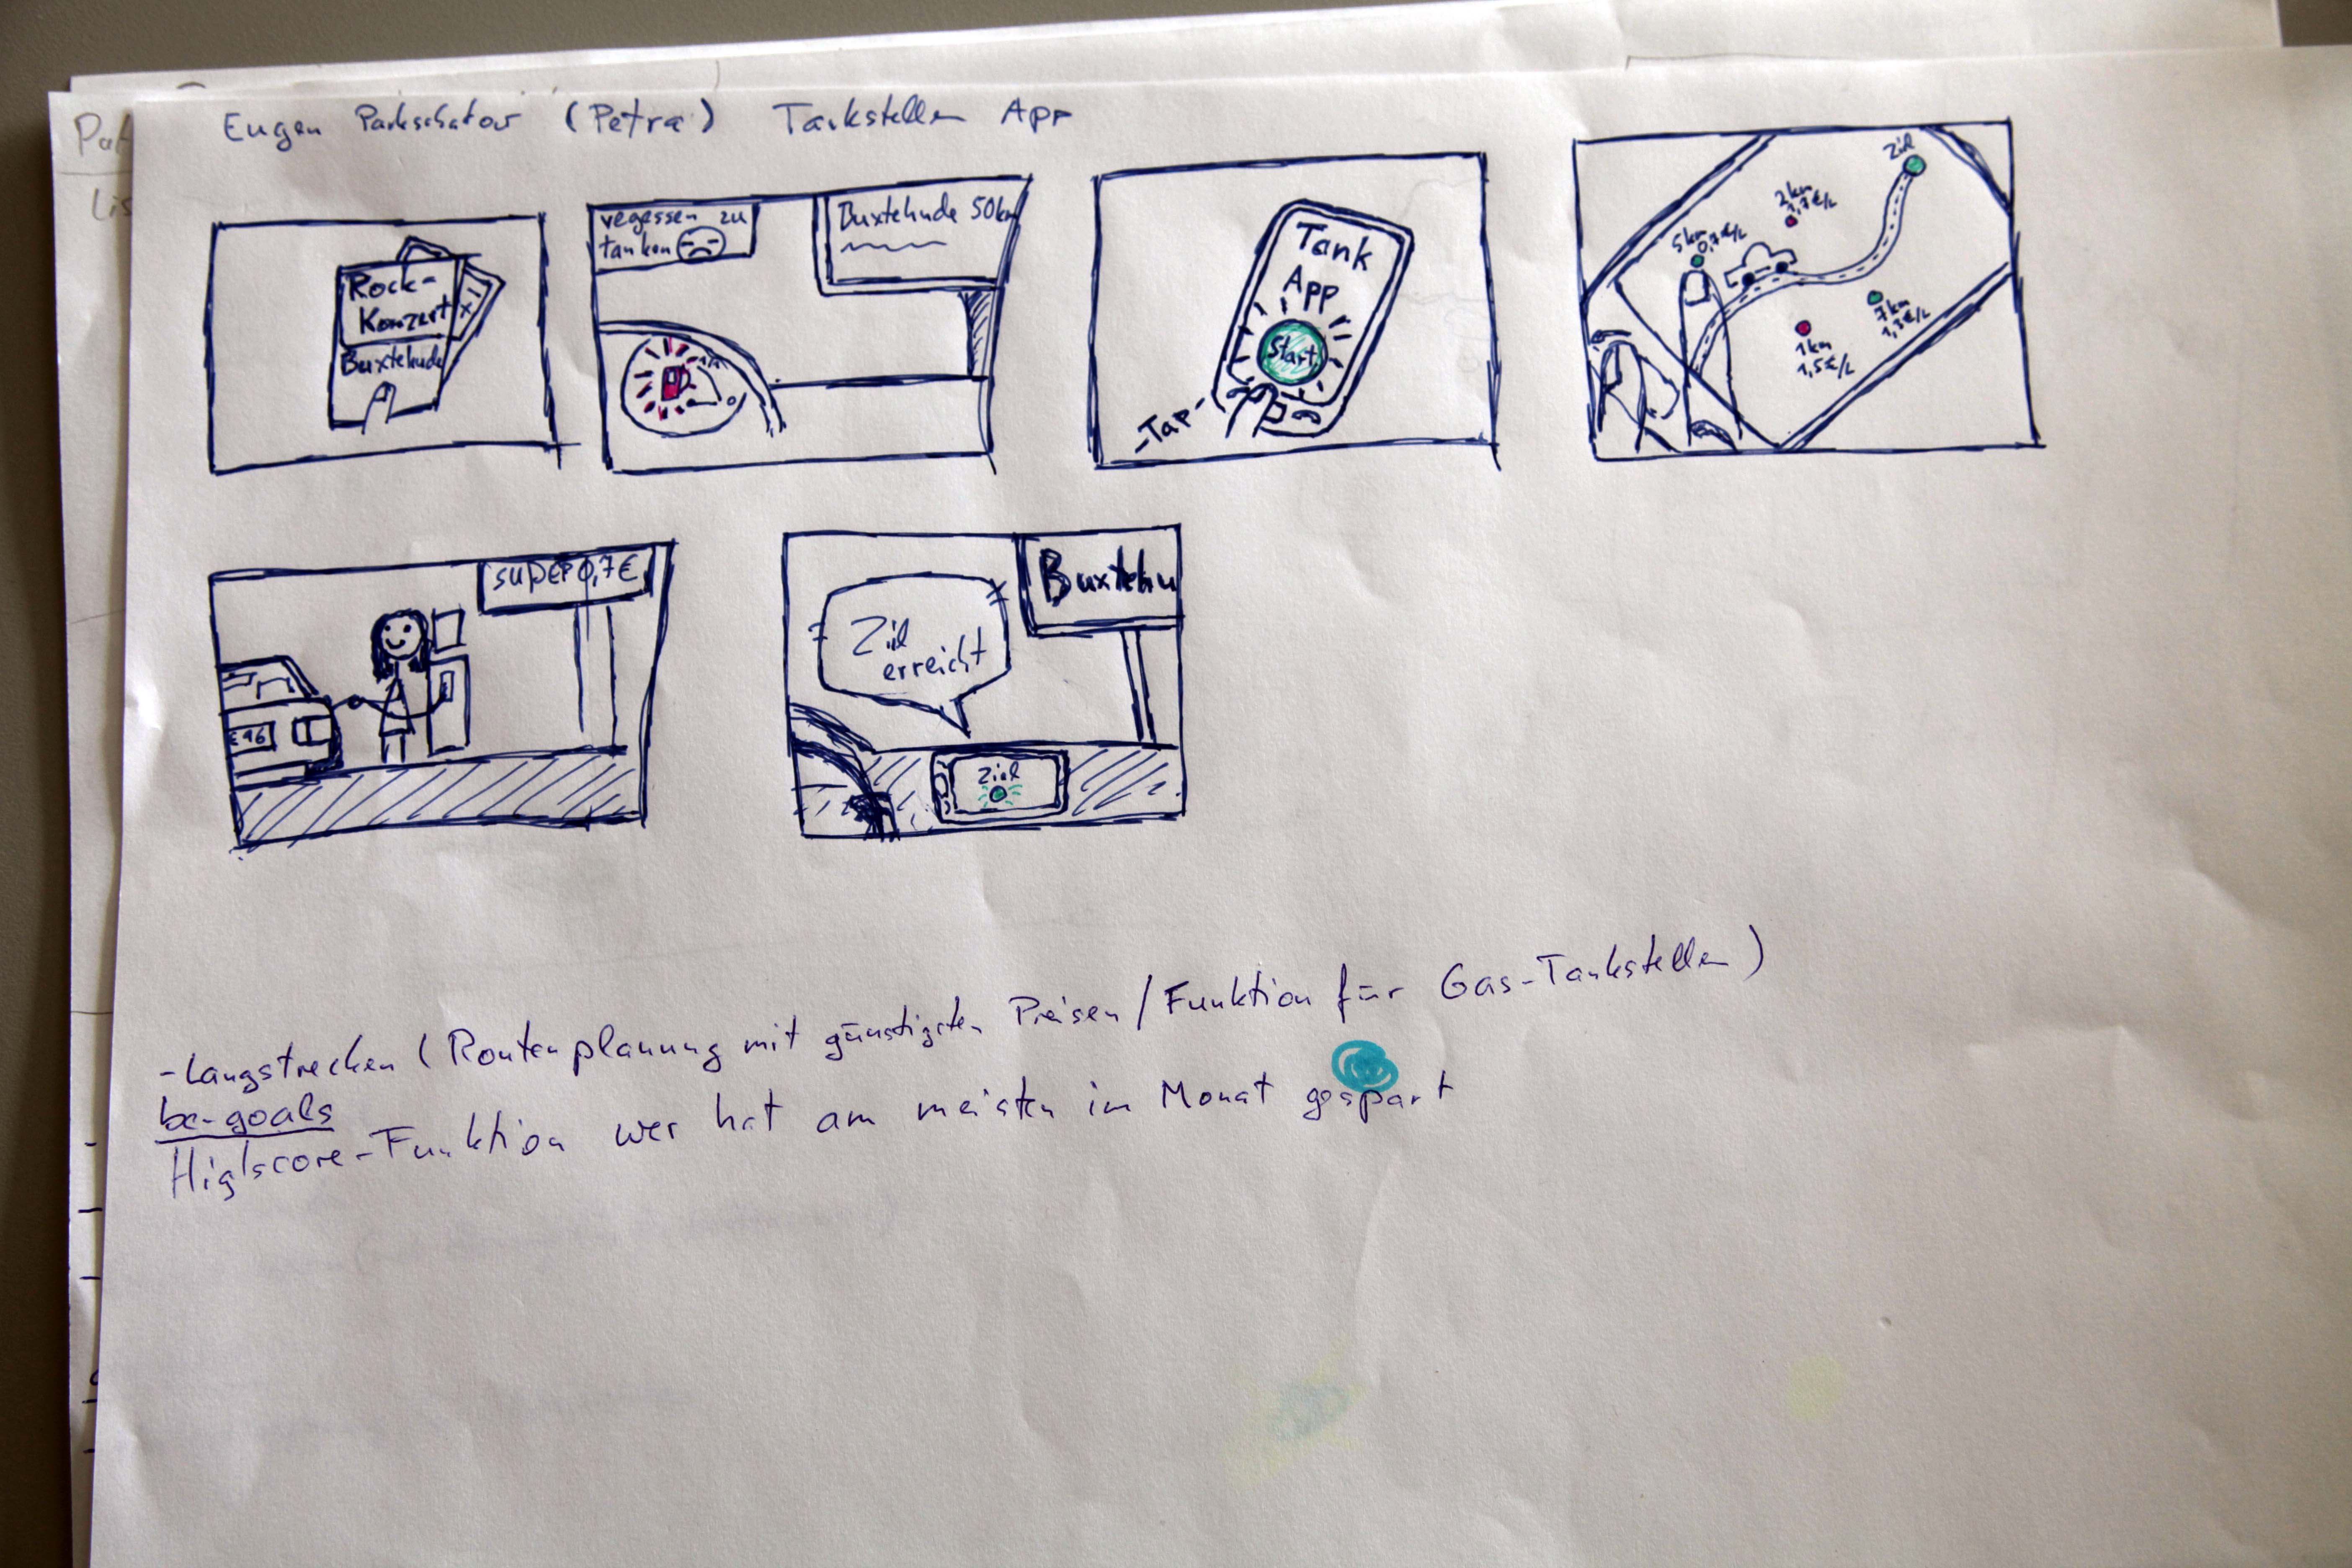 Eugen (Petra) Tankstellen App
Pat
Lis
Rock-
Konzert
Buxtehude
vegessen zu
tanken
Buxtehude 50km
Tank
App
Start
-Tap-
Ziel
2km
1,7€/L
5km
0,7€/L
7km
1,3€/L
1km
1,5€/L
super 0,7€
E 96
Ziel
erreicht
Buxtehu
Ziel
-Langstrecken (Routenplanung mit günstigsten Preisen / Funktion für Gas-Tankstellen)
be-goals
Higlscore-Funktion wer hat am meisten im Monat gespart